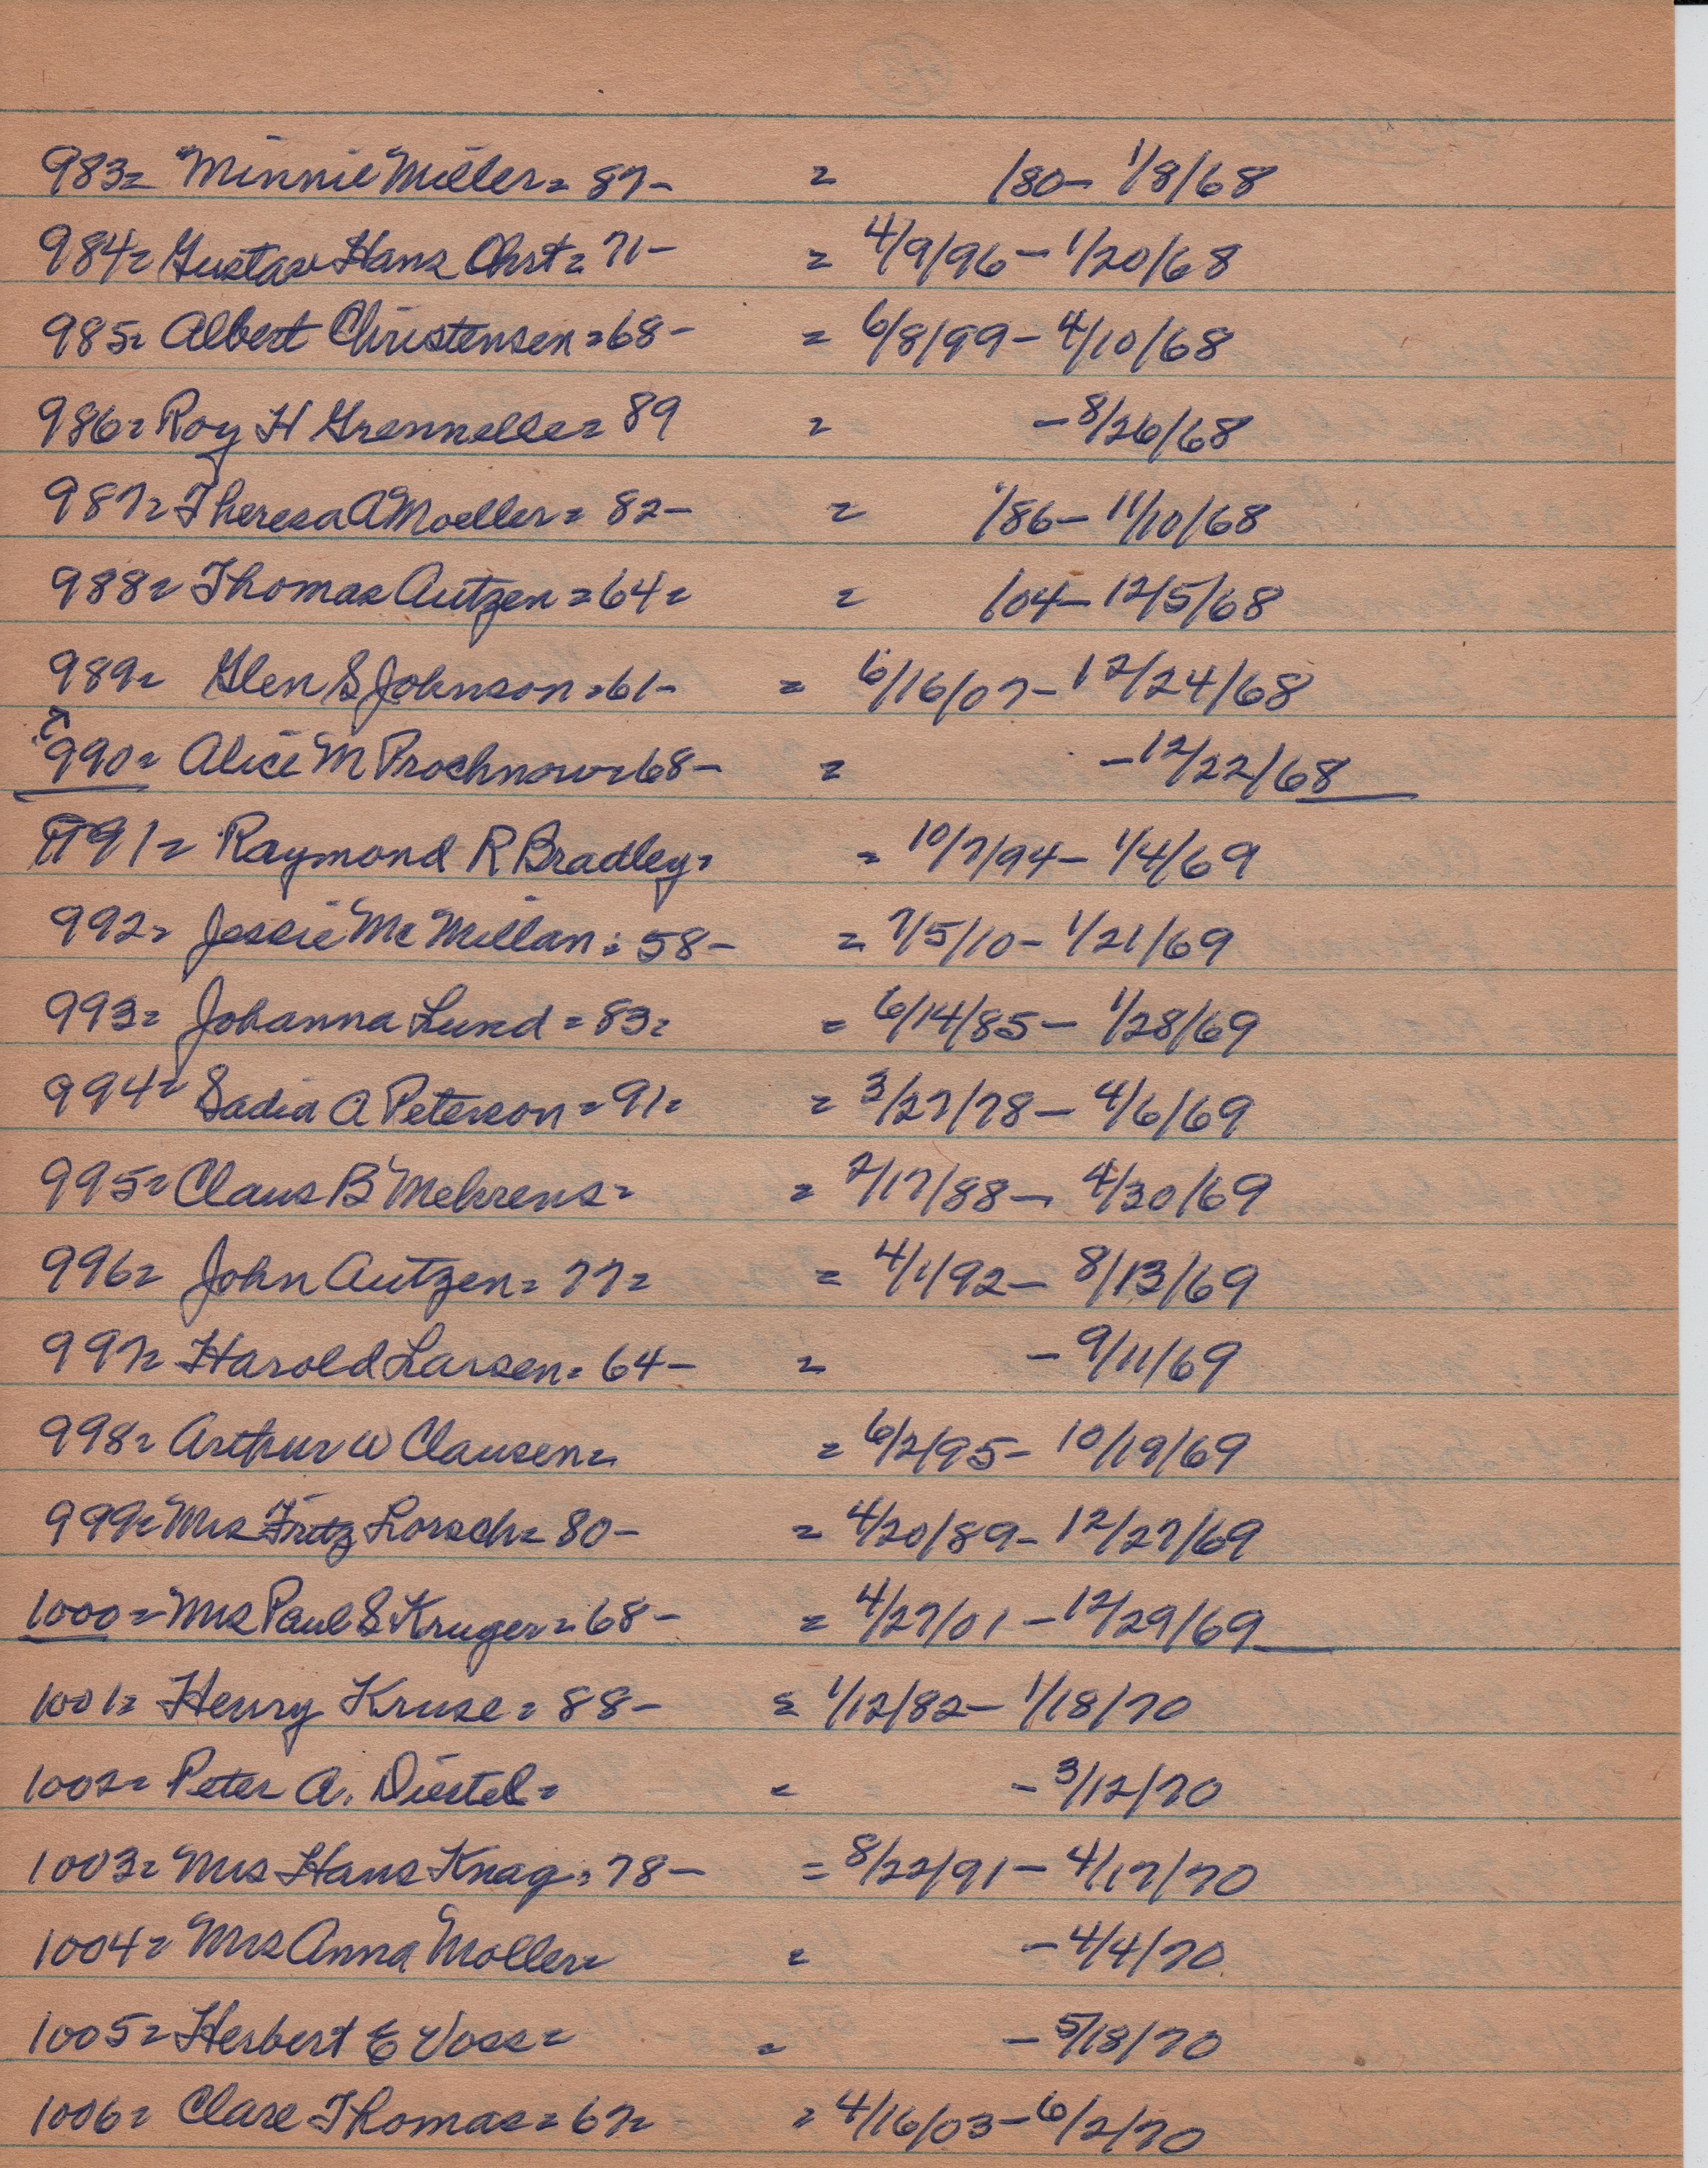 983= Minnie Miller= 87- = /80- 1/8/68
984= Gustav Hans Ohrt= 71- = 4/9/96- 1/20/68
985= Albert Christensen=68- = 6/8/99- 4/10/68
986= Roy H Grennelle= 89 = -8/26/68
987= Theresa A Moeller= 82- = /86- 11/10/68
988= Thomas Autzen=64= = /04- 12/5/68
989= Glen S Johnson=61- = 6/16/07- 12/24/68
990= Alice M Prochnow=68- = -12/22/68
991= Raymond R Bradley= = 10/7/94- 1/4/69
992= Jessie McMillan= 58- = 7/5/10- 1/21/69
993= Johanna Lund=83= = 6/14/85- 1/28/69
994= Sadia A Peterson=91= = 3/27/78- 4/6/69
995= Claus B Mehrens= = 2/17/88- 4/30/69
996= John Autzen= 77= = 4/1/92- 8/13/69
997= Harold Larsen= 64- = -9/11/69
998= Arthur W Clausen= = 6/2/95- 10/19/69
999= Mrs Fritz Lorsch= 80- = 4/20/89- 12/27/69
1000= Mrs Paul S Kruger=68- = 4/27/01-12/29/69
1001= Henry Kruse= 88- = 1/12/82- 1/18/70
1002= Peter A. Diestel= = -3/12/70
1003= Mrs Hans Knag=78- = 8/22/91- 4/17/70
1004= Mrs Anna Moller= = -4/4/70
1005= Herbert E Voss= = -5/18/70
1006= Clare Thomas=67= = 4/16/03-6/2/70